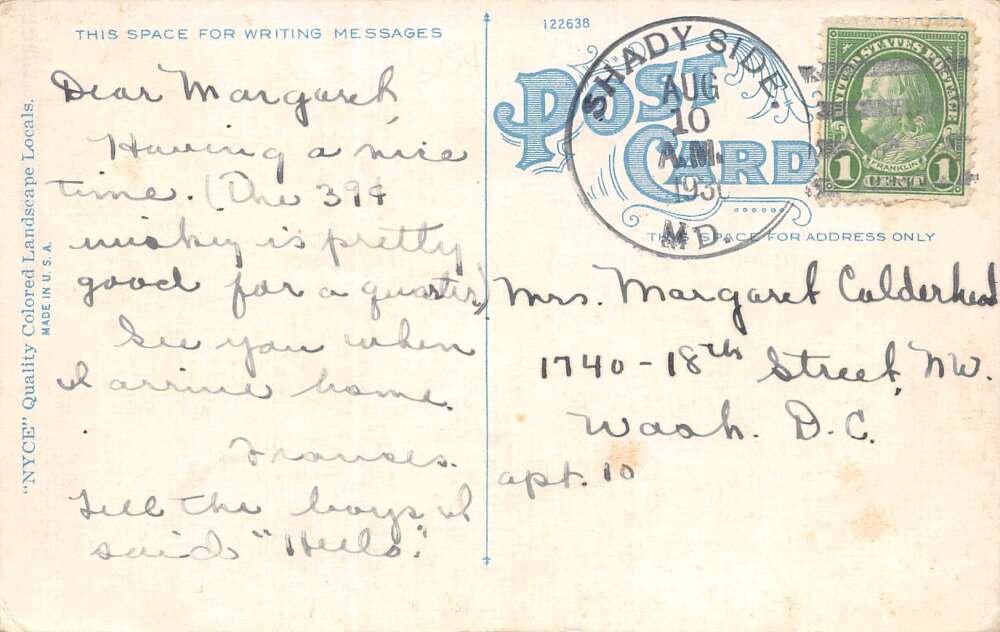 THIS SPACE FOR WRITING MESSAGES
Dear Margaret,
Having a nice
time. (The 39¢
miskey is pretty
good for a quarter)
See you when
I arrive home.
Frances.
Tell the boys I
said "Hello."
"NYCE" Quality Colored Landscape Locals.
MADE IN U.S.A.
122638
POST CARD
SHADY SIDE.
AUG
10
A.M.
MD.
UNITED STATES POSTAGE
FRANKLIN
1 CENT 1
THIS SPACE FOR ADDRESS ONLY
Mrs. Margaret Calderhead
1740-18th Street, NW.
Wash. D.C.
apt. 10